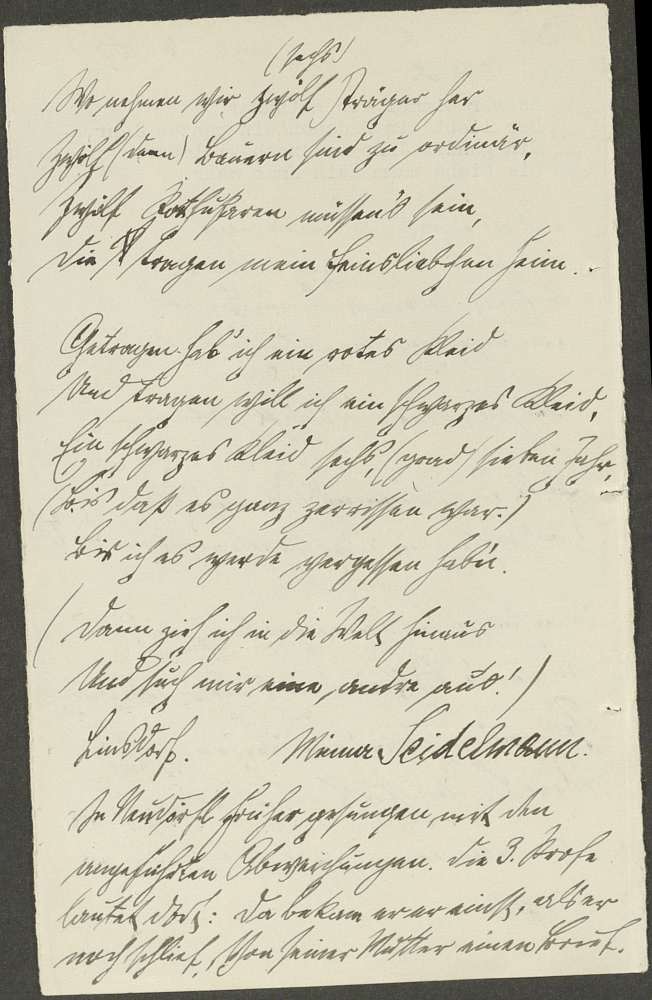 (sechs)
Wo nehmen wir zwölf Träger her
Zwölf (denn) Bauern sind zu ordinär,
Zwölf Rothusaren müssen's sein,
Die tragen mein Feinsliebchen heim.
Getragen hab' ich ein rotes Kleid
Und tragen will ich ein schwarzes Kleid,
Ein schwarzes Kleid sechs, (grad) sieben Jahr,
(Bis daß es ganz zerrissen war.)
Bis ich es werde vergessen hab'n.
(Dann zieh ich in die Welt hinaus
Und such mir eine andre aus!)
Minna Seidelmann.
In Neudörfl früher gesungen, mit den
angeführten Abweichungen. Die 3. Strofe
lautet dort: Da bekam er einst, als er
noch schlief, Von seiner Mutter einen Brief.